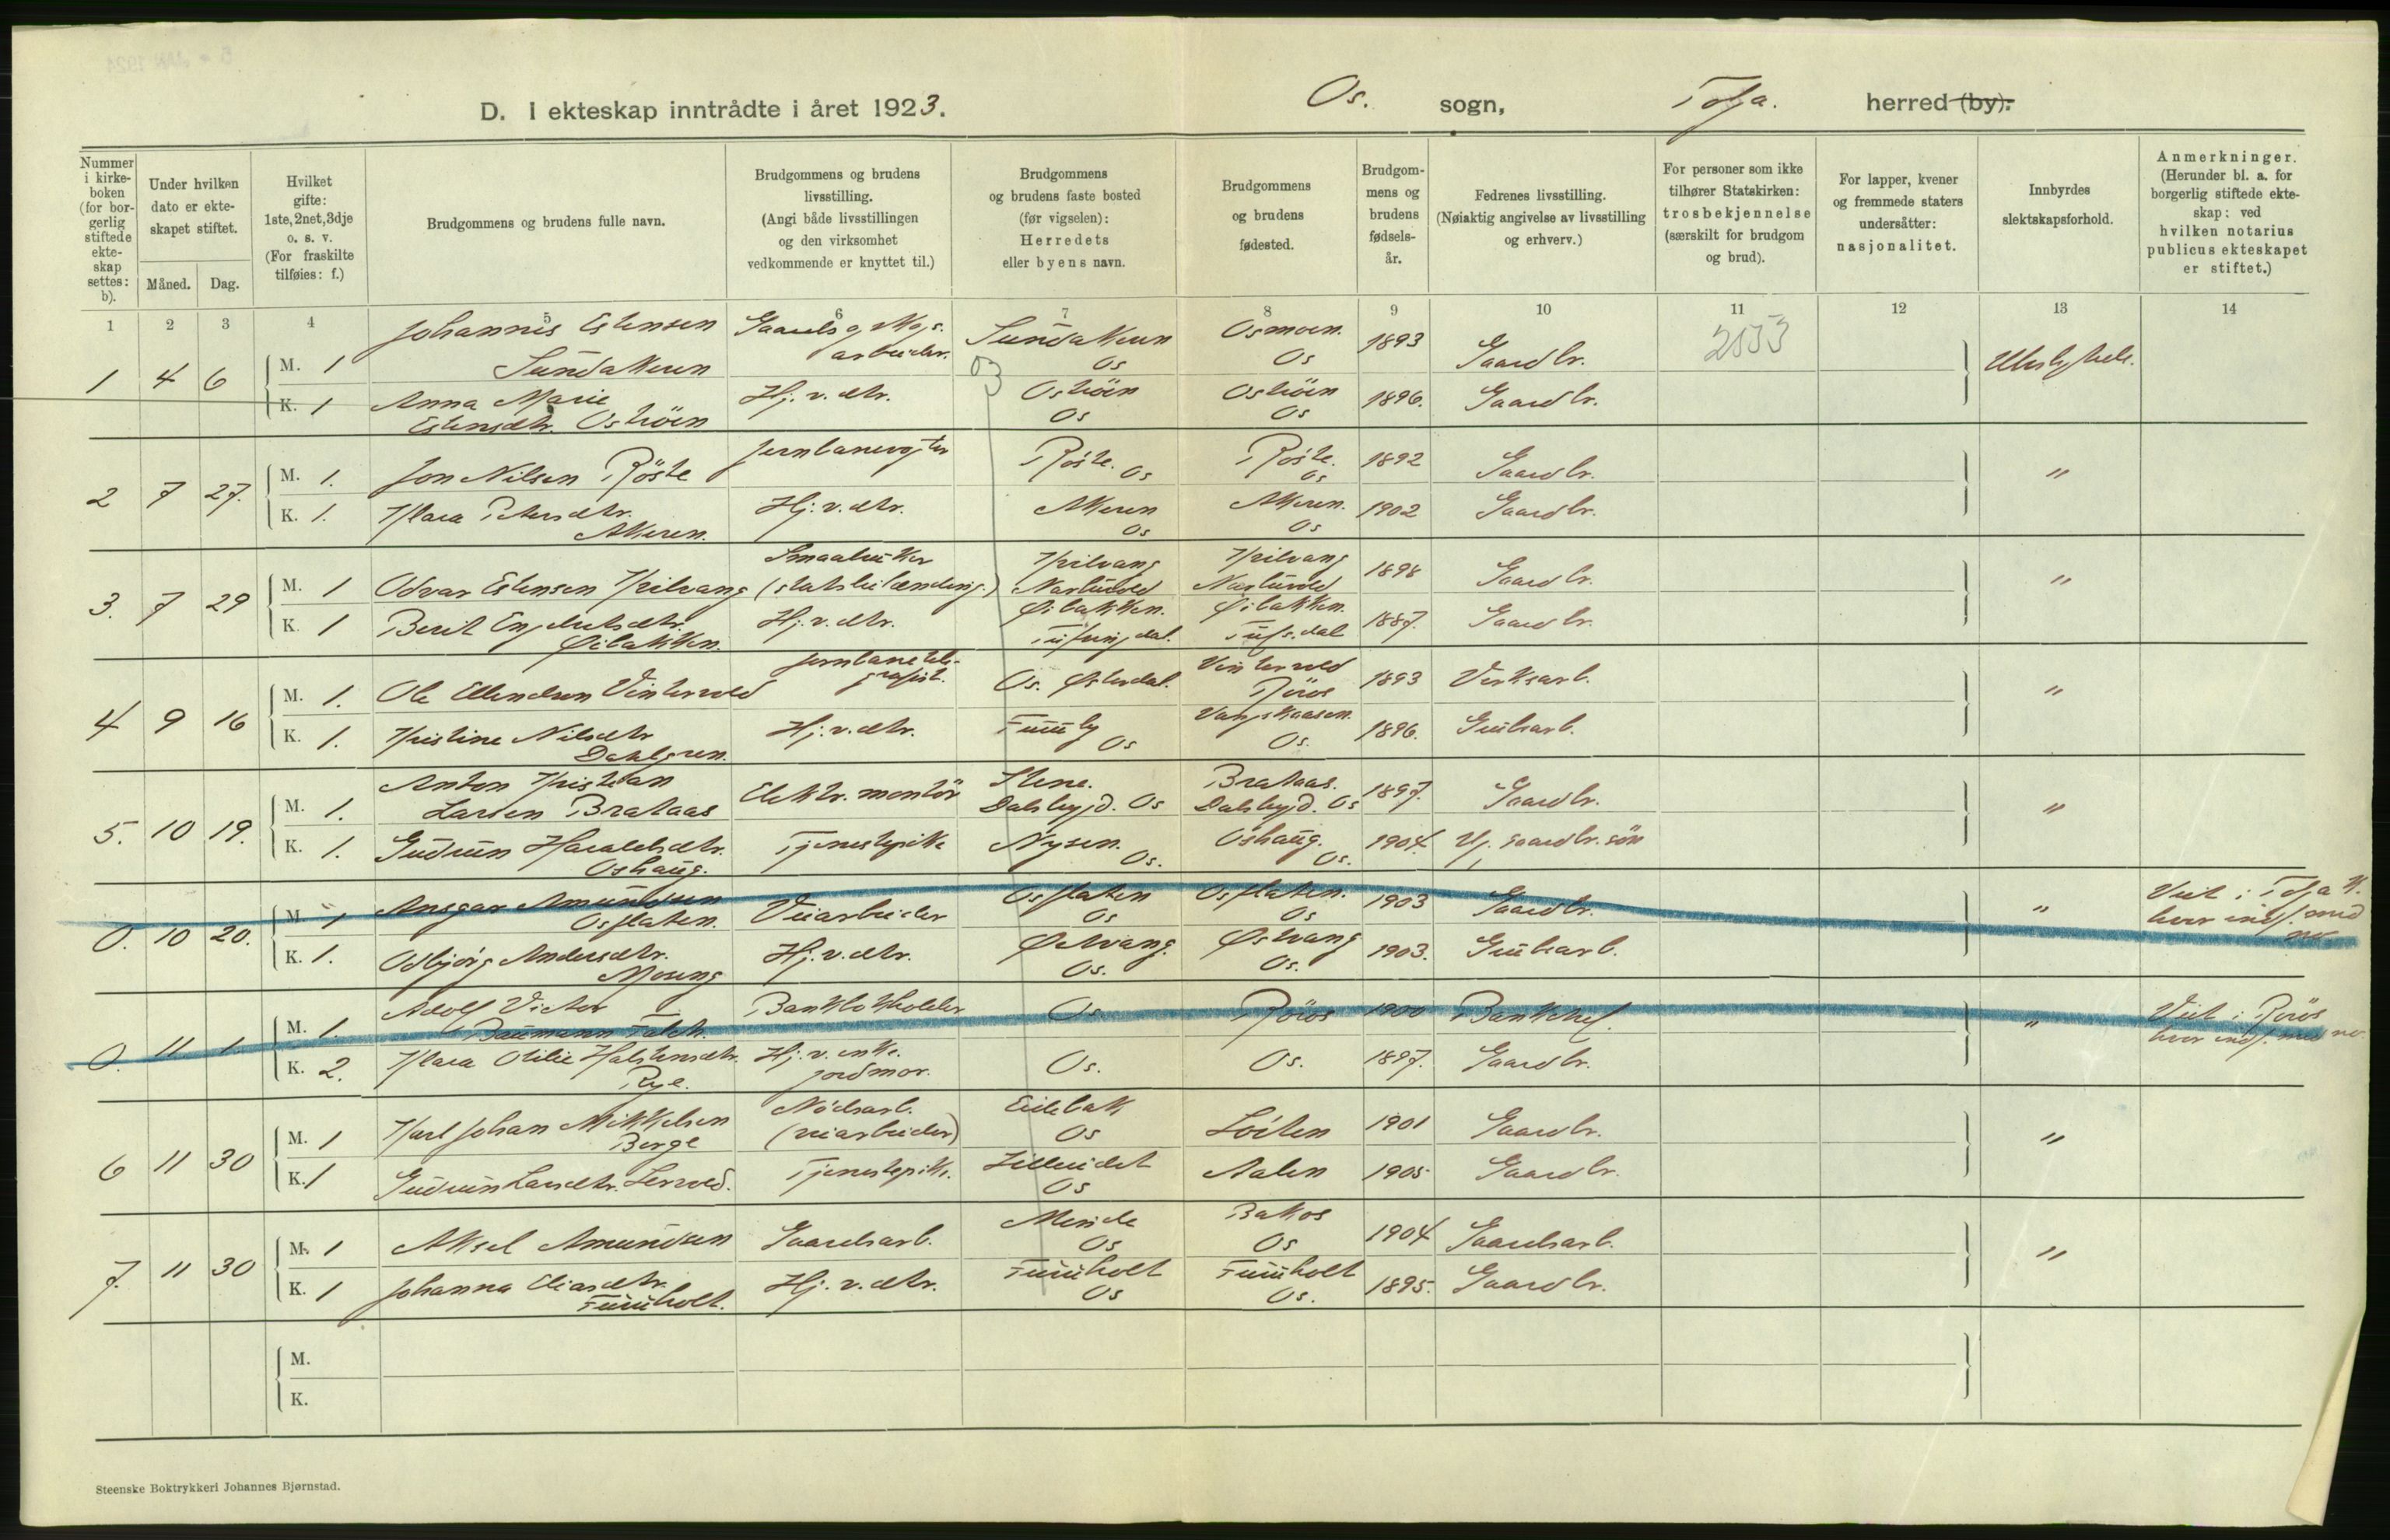 D. I ekteskap inntrådte i året 1923.
Os. sogn, Tolga. herred (by).
Nummer i kirke-boken (for bor-gerlig stiftede ekte-skap settes: b).
Under hvilken dato er ekte-skapet stiftet.
Måned. Dag.
Hvilket gifte: 1ste, 2net, 3dje o. s. v. (For fraskilte tilføies: f.)
Brudgommens og brudens fulle navn.
Brudgommens og brudens livsstilling. (Angi både livsstillingen og den virksomhet vedkommende er knyttet til.)
Brudgommens og brudens faste bosted (før vigselen): Herredets eller byens navn.
Brudgommens og brudens fødested.
Brudgom-mens og brudens fødsels-år.
Fedrenes livsstilling. (Nøiaktig angivelse av livsstilling og erhverv.)
For personer som ikke tilhører Statskirken: trosbekjennelse (særskilt for brudgom og brud).
For lapper, kvener og fremmede staters undersåtter: nasjonalitet.
Innbyrdes slektskapsforhold.
Anmerkninger. (Herunder bl. a. for borgerlig stiftede ekte-skap: ved hvilken notarius publicus ekteskapet er stiftet.)
1 2 3 4 5 6 7 8 9 10 11 12 13 14
1 4 6 M. 1 Johannes Estensen Sundmoen arbeider. Os Osmoen. Os 1893 Gaardbr. 2553
K. 1 Anna Marie Estensdtr. Oströen Hj. v. dtr. Oströen Os Oströen Os 1896. Gaardbr.
2 7 27. M. 1. Jon Nilsen Röste Jernbanevogter Röste. Os Röste. Os 1892 Gaardbr. "
K. 1. Klara Petersdtr. Hj. v. dtr. Os Os 1902 Gaardbr.
3. 7 29 M. 1 Odvar Estensen Smaabruker Narbuvold Narbuvold 1898 Gaardbr. "
K. 1 Berit Engebretsdtr. Øibakken. Hj. v. dtr. Øibakken. Tufsingdal. Øibakken. Tufs. dal 1887. Gaardbr.
4 9 16 M. 1. Ole Ellendsen Vintervold Jernbanetele-grafist. Os. Østerdal. Vintervold Röros 1893 Verksarb. "
K. 1. Kristine Nilsdtr Dahlgren. Hj. v. dtr. Os Os. 1896. Grubearb.
5. 10 19. M. 1. Anton Kristian Larsen Brataas Elektr. montör Stene. Dalsbygd. Os Brataas. Dalsbygd. Os 1897. Gaardbr. "
K. 1. Gudrun Haraldsdtr. Oshaug. Tjenestepike Nysen. Os. Oshaug. Os. 1904. gaardbr. sön
0. 10 20. M. 1 Ansgar Amundsen Osflaten. Veiarbeider Osflaten Os Osflaten. Os 1903 Gaardbr. " Viet i Tolga K. hvor indf. med no
K. 1. Odbjörg Andersdtr. Moseng Hj. v. dtr. Østvang. Os. Østvang Os. 1903. Grubearb.
0. 11 1. M. 1. Adolf Victor Baumann Falch. Bankbokholder Os Röros 1900 Bankchef. " Viet i Röros hvor indf. med no.
K. 2. Klara Otilie Halstensdtr. Rye. Hj. v. enke. jordmor. Os. Os. 1897. Gaardbr.
6 11 30 M. 1 Karl Johan Mikkelsen Berge Nödsarb. (veiarbeider) Eidebak Os Löiten 1901 Gaardbr. "
K. 1 Gudrun Larsdtr. Lervold. Tjenestepike. Os Aalen 1905 Gaardbr.
7. 11 30 M. 1 Aksel Amundsen Gaardsarb. Os Bakos Os 1904 Gaardsarb. "
K. 1 Johanna Eliasdtr. Fuuholt. Hj. v. dtr. Fuuholt Os Fuuholt Os. 1895. Gaardbr.
M.
K.
Steenske Boktrykkeri Johannes Bjørnstad.